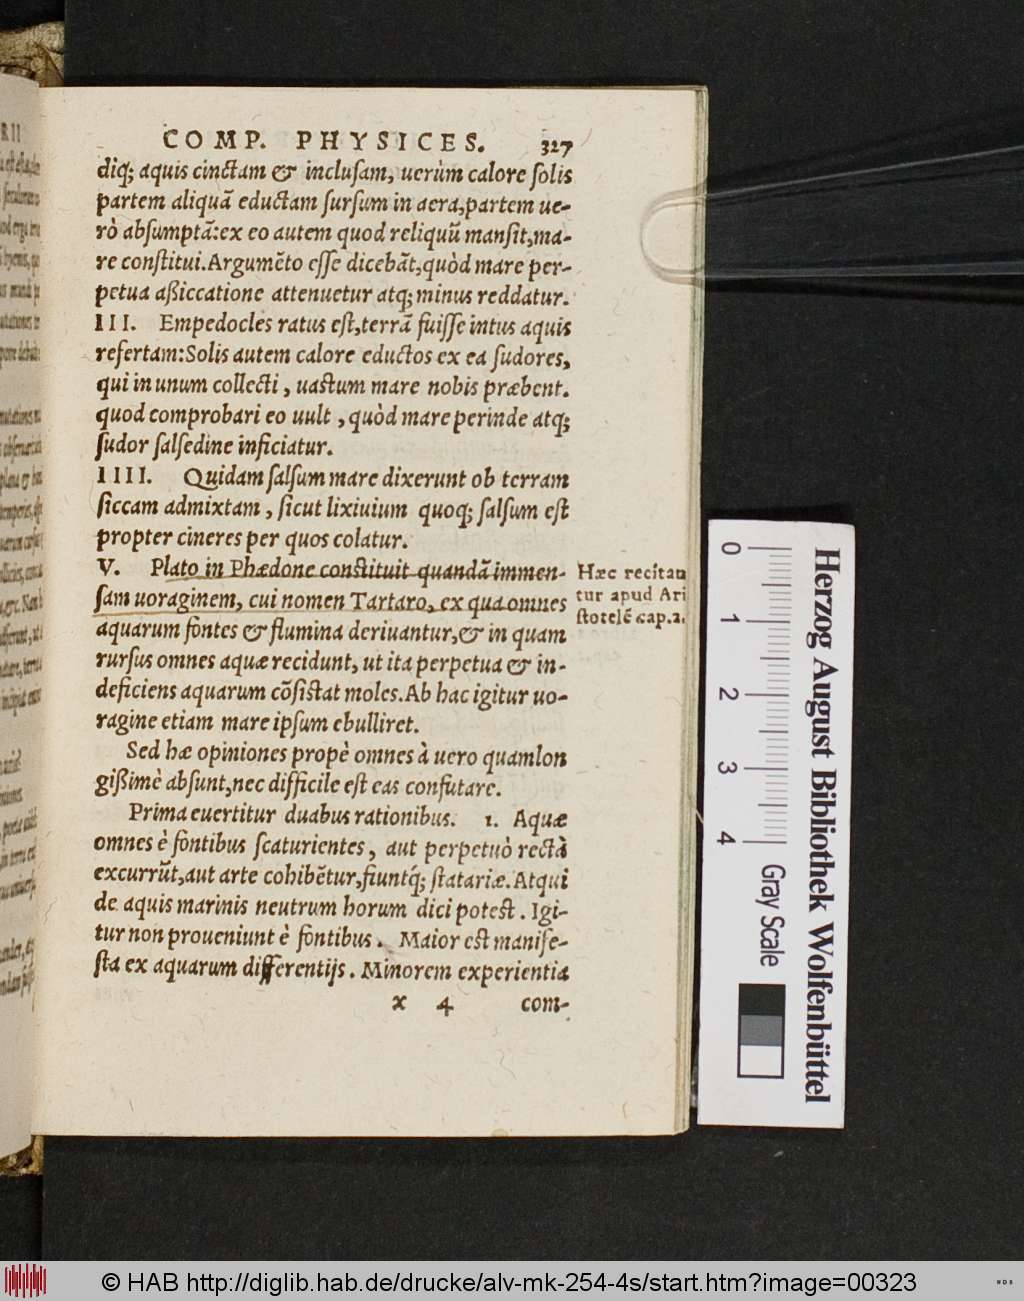 COMP. PHYSICES. 327
diq; aquis cinctam & inclusam, uerùm calore solis
partem aliquã eductam sursum in aera, partem ue-
rò absumptã: ex eo autem quod reliquũ mansit, ma-
re constitui. Argumẽto esse dicebãt, quòd mare per-
petua aßiccatione attenuetur atq; minus reddatur.
III. Empedocles ratus est, terrã fuisse intus aquis
refertam: Solis autem calore eductos ex ea sudores,
qui in unum collecti, uastum mare nobis præbent.
quod comprobari eo uult, quòd mare perinde atq;
sudor salsedine inficiatur.
IIII. Quidam salsum mare dixerunt ob terram
siccam admixtam, sicut lixiuium quoq; salsum est
propter cineres per quos colatur.
V. Plato in Phædone constituit quandã immen-
sam uoraginem, cui nomen Tartaro, ex qua omnes
aquarum fontes & flumina deriuantur, & in quam
rursus omnes aquæ recidunt, ut ita perpetua & in-
deficiens aquarum cõsistat moles. Ab hac igitur uo-
ragine etiam mare ipsum ebulliret.
Hæc recitan
tur apud Ari
stotelẽ cap.2.
Sed hæ opiniones propè omnes à uero quamlon
gißimè absunt, nec difficile est eas confutare.
Prima euertitur duabus rationibus. 1. Aquæ
omnes è fontibus scaturientes, aut perpetuò rectà
excurrũt, aut arte cohibẽtur, fiuntq́; statariæ. Atqui
de aquis marinis neutrum horum dici potest. Igi-
tur non proueniunt è fontibus. Maior est manife-
sta ex aquarum differentijs. Minorem experientia
x 4 com-
0 1 2 3 4
Gray Scale
Herzog August Bibliothek Wolfenbüttel
© HAB http://diglib.hab.de/drucke/alv-mk-254-4s/start.htm?image=00323